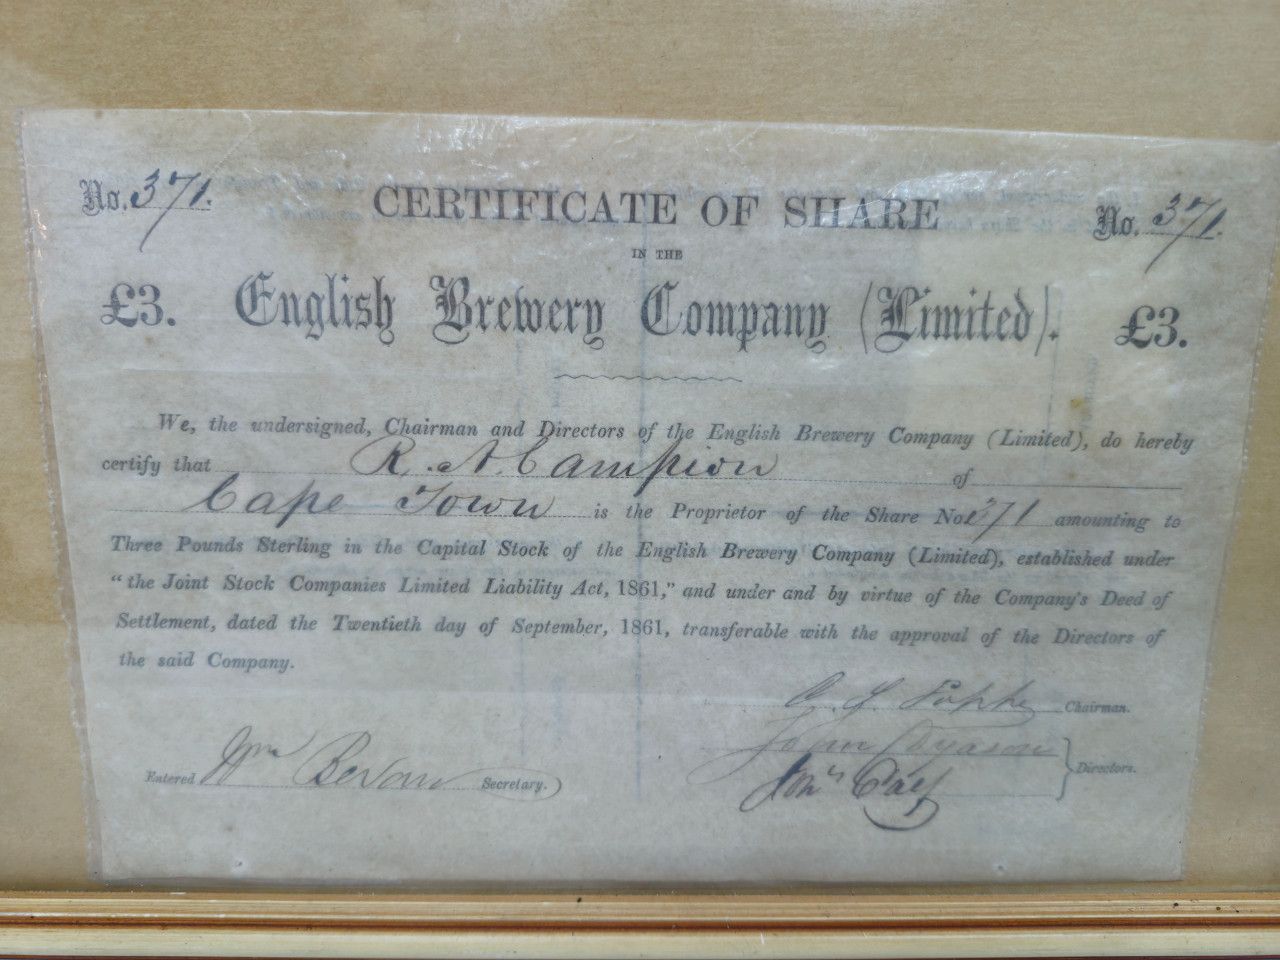 No. 371. CERTIFICATE OF SHARE No. 371.
IN THE
£3. English Brewery Company (Limited). £3.
We, the undersigned, Chairman and Directors of the English Brewery Company (Limited), do hereby
certify that R. A. Campion of
Cape Town is the Proprietor of the Share No 371 amounting to
Three Pounds Sterling in the Capital Stock of the English Brewery Company (Limited), established under
"the Joint Stock Companies Limited Liability Act, 1861," and under and by virtue of the Company's Deed of
Settlement, dated the Twentieth day of September, 1861, transferable with the approval of the Directors of
the said Company.
Chairman.
John Dyason
Entered Wm Bevan Secretary.
Directors.